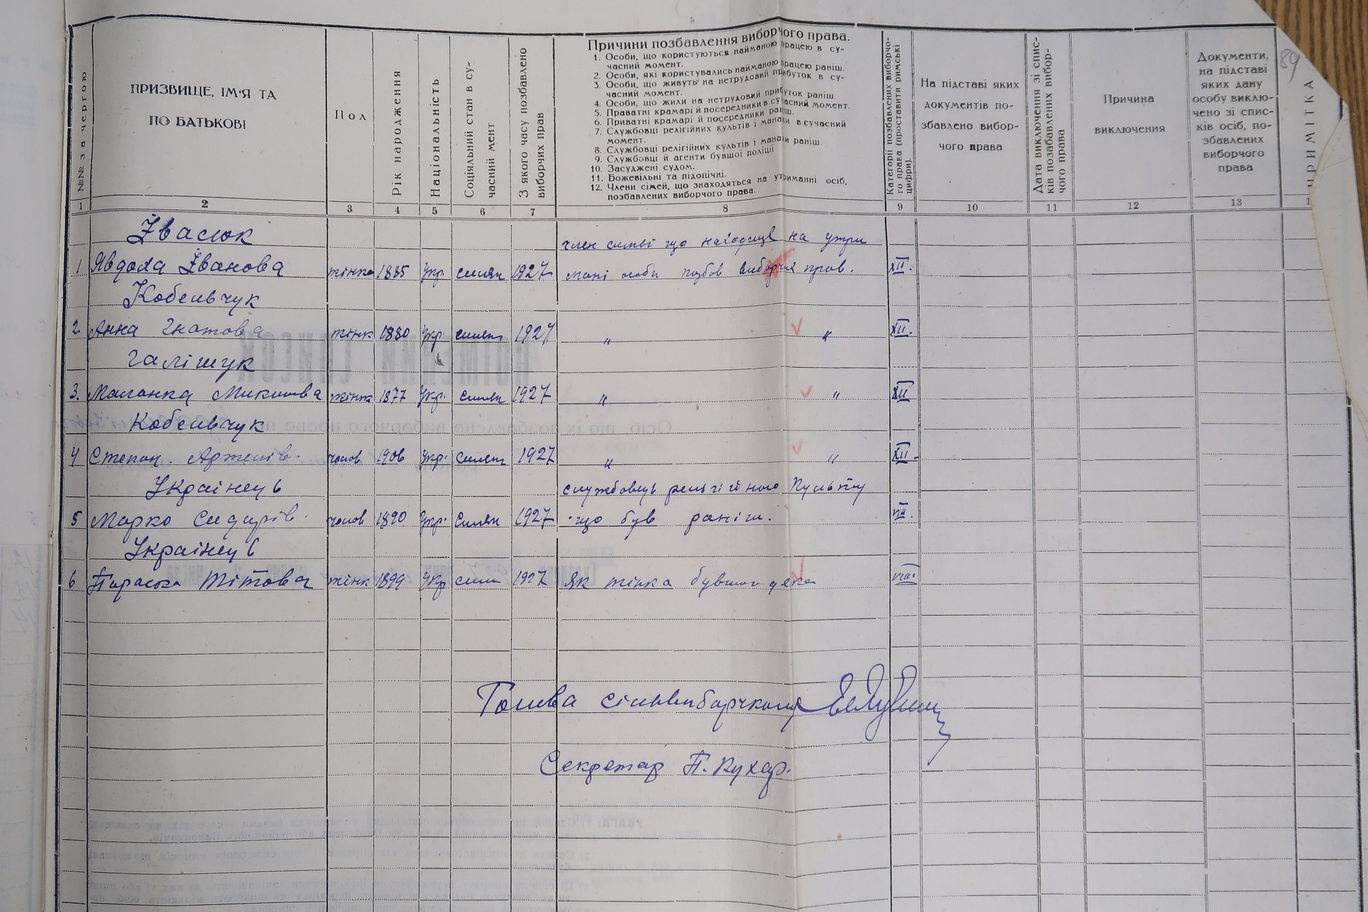 89
№№ за чергою
ПРИЗВИЩЕ, ІМ'Я ТА
ПО БАТЬКОВІ
Пол
Рік народження
Національність
Соціяльний стан в су-
часний мент
З якого часу позбавлено
виборчих прав
Причини позбавлення виборчого права.
1. Особи, що користуються найманою працею в су-
часний момент.
2. Особи, які користувались найманою працею раніш.
3. Особи, що живуть на нетрудовий прибуток в су-
часний момент.
4. Особи, що жили на нетрудовий прибуток раніш.
5. Приватні крамарі й посередники в сучасний момент.
6. Приватні крамарі й посередники раніш.
7. Службовці релігійних культів і манахи в сучасний
момент.
8. Службовці релігійних культів і манахи раніш.
9. Службовці й агенти бувшої поліції
10. Засуджені судом.
11. Божевільні та підопічні.
12. Члени сімей, що знаходяться на утриманні осіб,
позбавлених виборчого права.
Категорії позбавлених виборчо-
го права (проставити римські
цифри).
На підставі яких
документів по-
збавлено вибор-
чого права
Дата виключення зі спис-
ків позабавлених вибор-
чого права
Причина
виключення
Документи,
на підставі
яких дану
особу виклю-
чено зі спис-
ків осіб, по-
збавлених
виборчого
права
ПРИМІТКА
1 2 3 4 5 6 7 8 9 10 11 12 13
Івасюк
член симьї що находице на утри
1 Явдоха Іванова жінка 1885 Укр. селян 1927 мані особи позбов виборчих прав. XII.
Кобельчук
2. Анна Гнатова жінк 1880 Укр. селян 1927 „ „ XII.
Галіщук
3. Маланка Микитова жінк 1877 Укр. селян 1927 „ „ XII
Кобельчук
4 Степан. чолов 1906 Укр. селян 1927 „ „ XII.
Українець
службовець релігійного культу
5 Марко Сидорів. чолов 1890 Укр. селян 1927 що був раніш. VIII.
Українець
6 Параска Тітова жінк 1899 Укр селян 1927 як жінка бувшого дяка VIII.
Голова сільвиборчкому
Секретар П. Кухар.